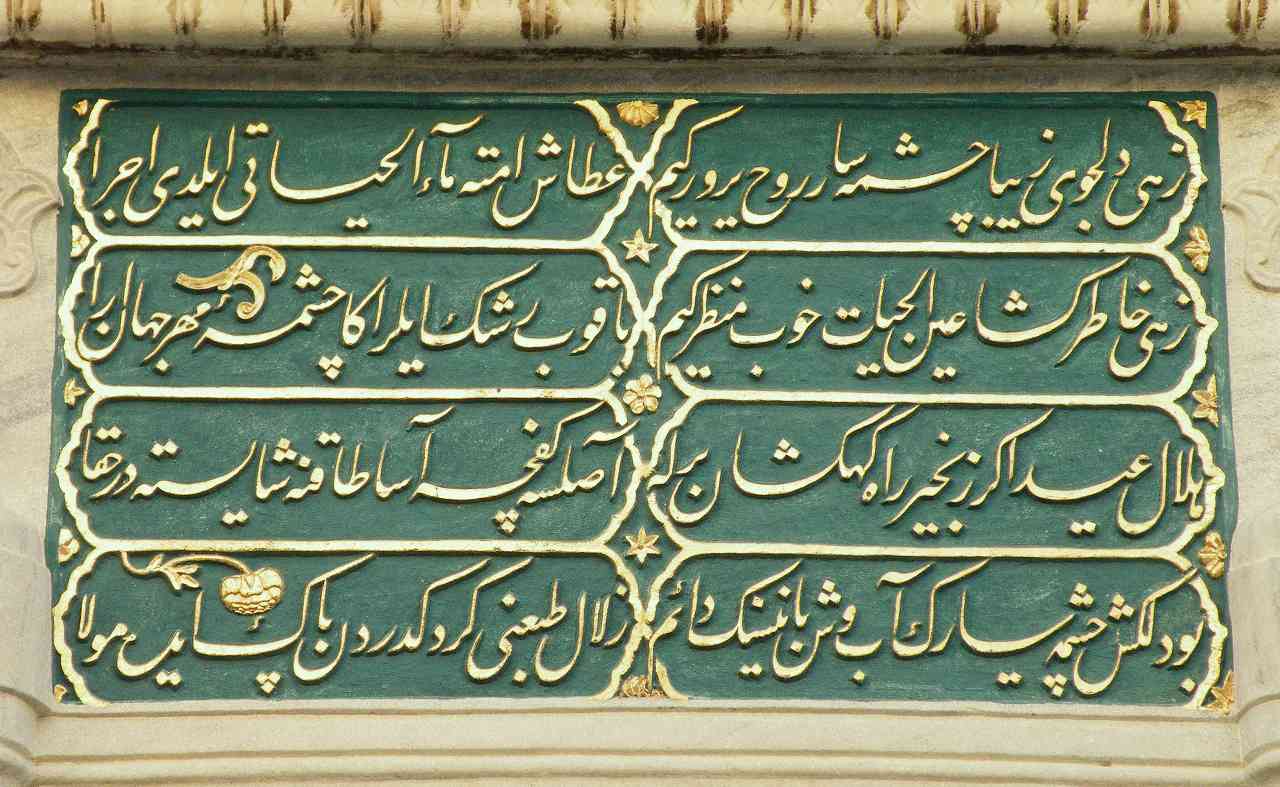 زهی دلجوی زیبا چشمه سار روح پرور کیم
عطاش امته ماء الحیاتی ایلدی اجرا
زهی خاطر کشا عین الحیات خوب منظر کیم
باقوب رشك ایلر اکا چشمهٔ مهر جهان ارا
هلال عید اکر زنجیر راه کهکشان برله
آصلسه کفچه آسا طاقنه شایسته در حقا
بو دلکش چشمه پاك آب وش بانینك دائم
زلال طبعنی کرد کدردن پاك ایده مولا